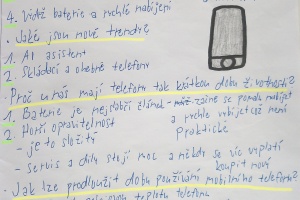 4. Výdrž baterie a rychlé nabíjení
· Jaké jsou nové trendy?
1. AI asistent
2. Skládací a ohebné telefony
· Proč u nás mají telefony tak krátkou dobu životnosti?
1. Baterie je nejslabší článek - začne se pomalu nabíjet
a rychle vybíjet což není
2. Horší opravitelnost praktické
- je to složitý
- servis a díly stojí moc a někdy se víc vyplatí
koupit nový
· Jak lze prodloužit dobu používání mobilního telefonu?
teplotu telefonu